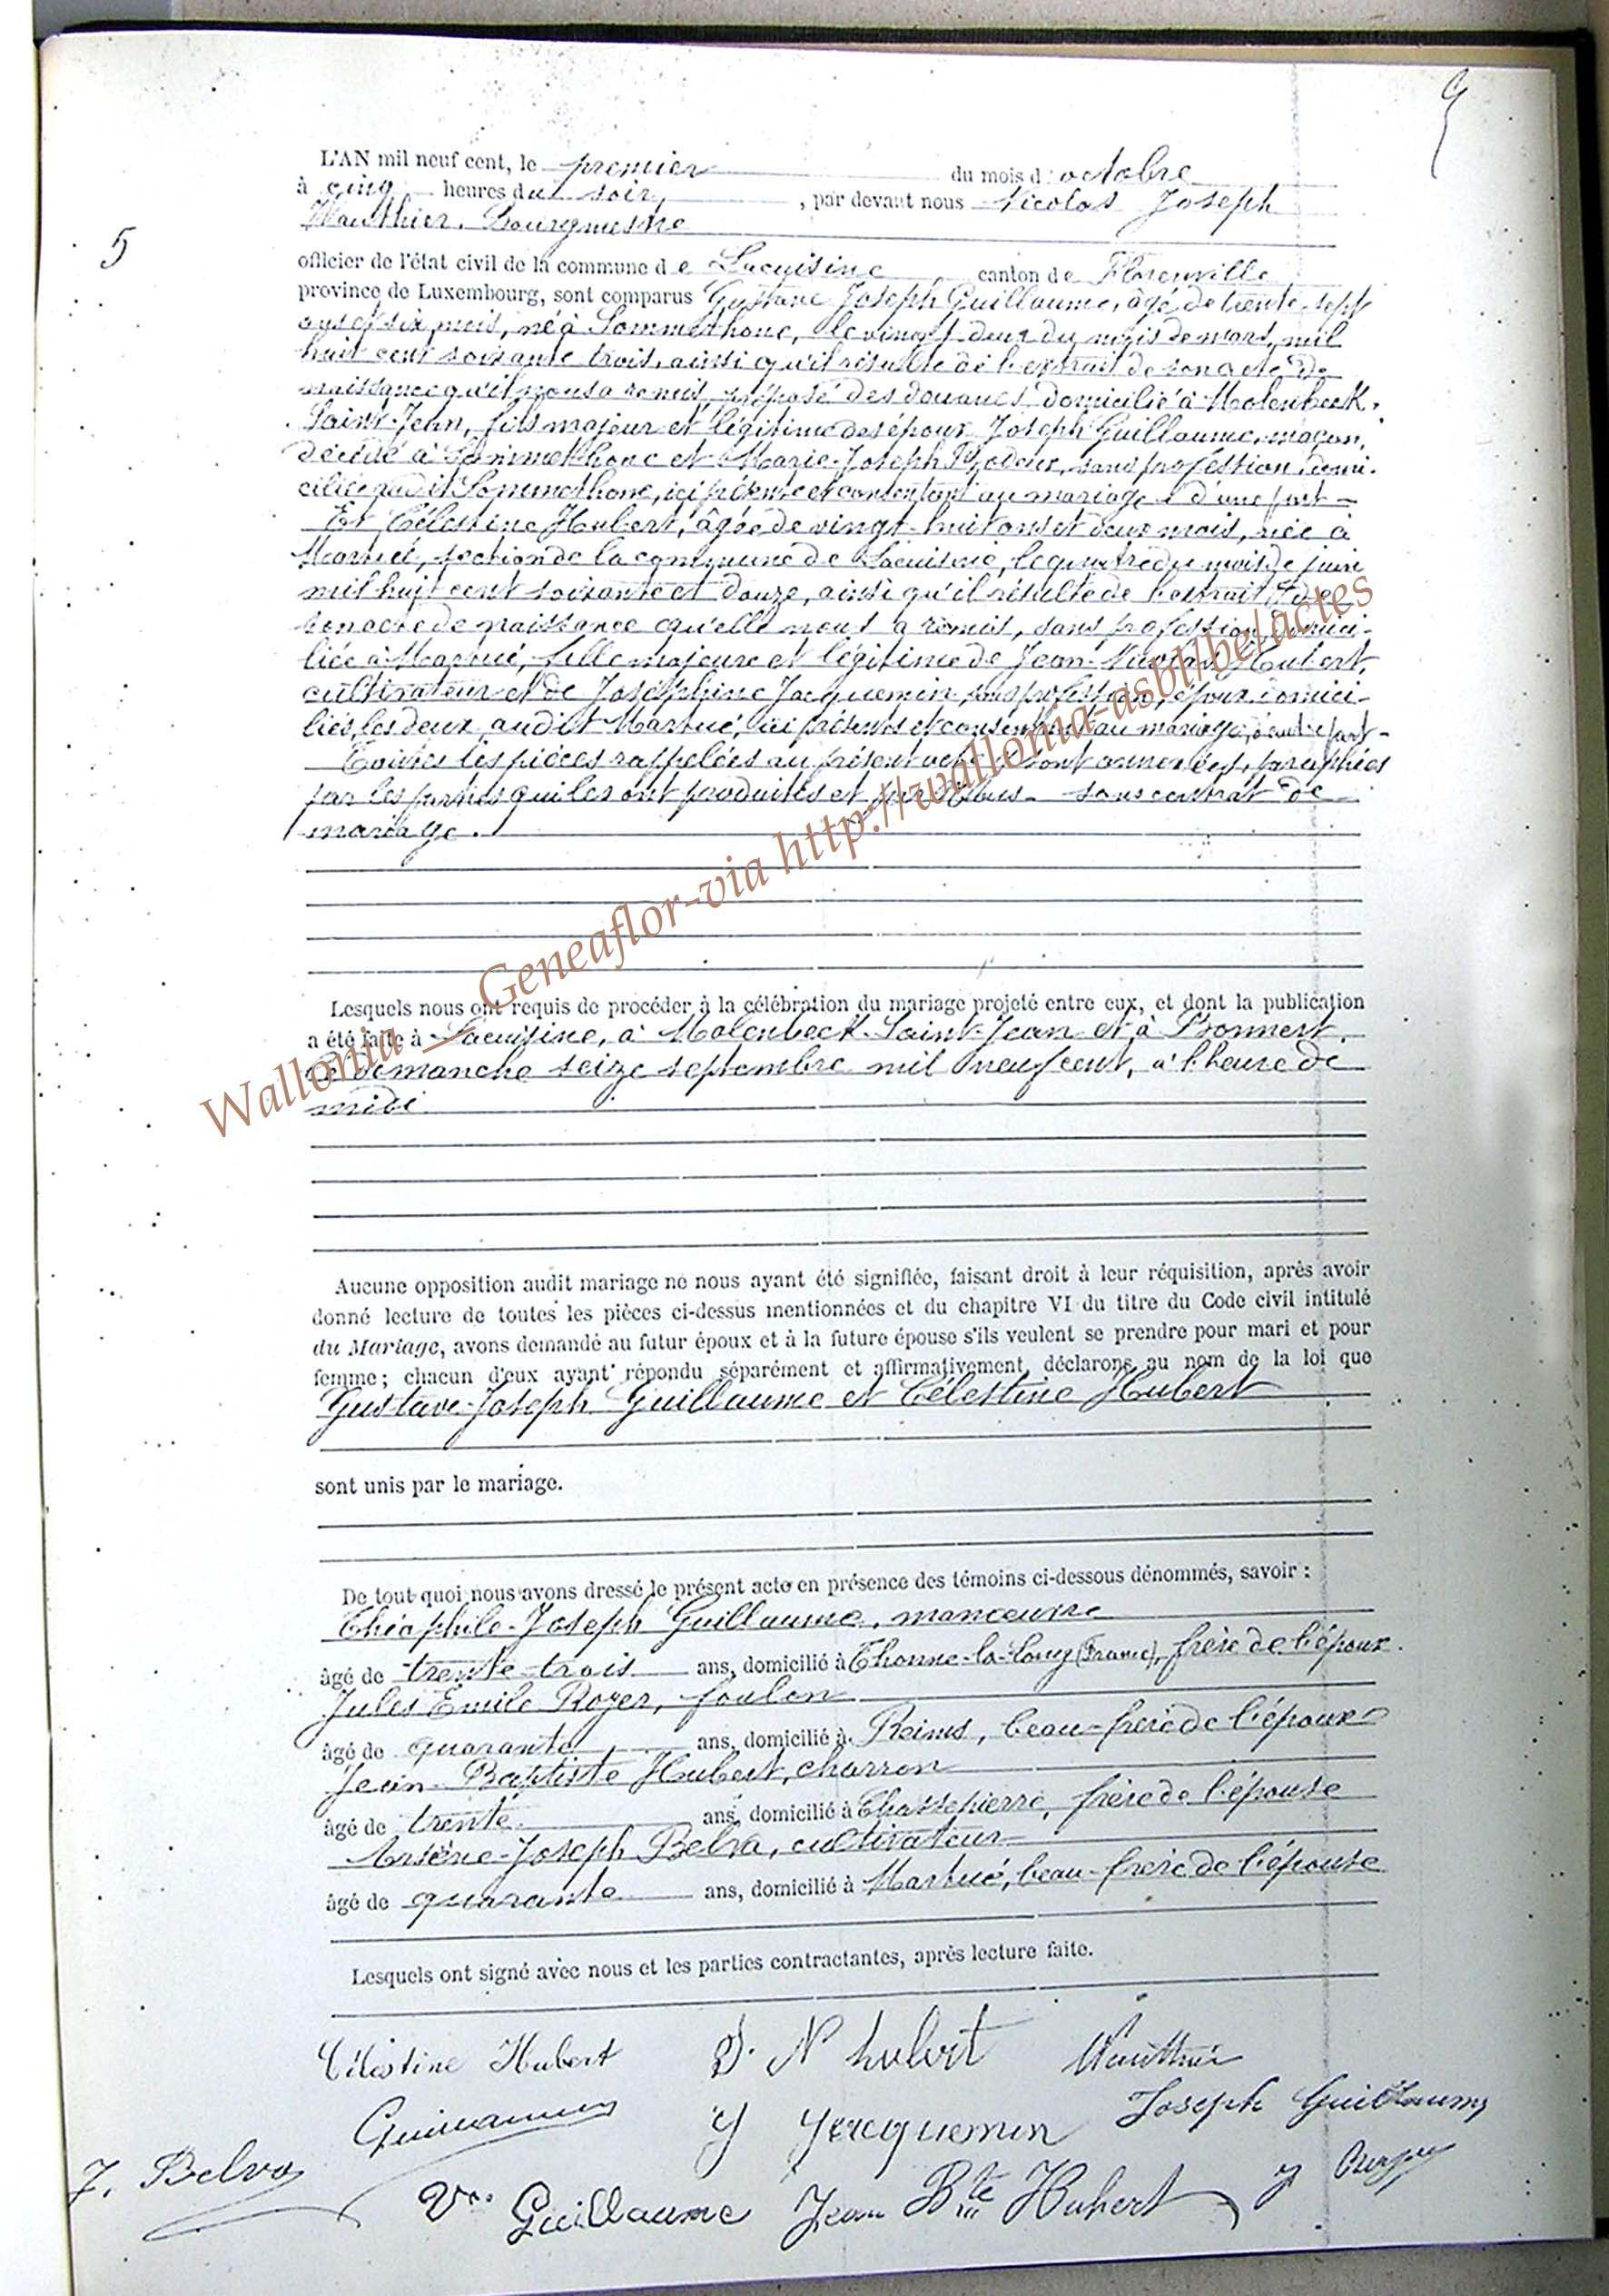 5
L'AN mil neuf cent, le premier du mois d'octobre
à cinq heures du soir, par devant nous Nicolas Joseph
Wauthier, Bourgmestre
officier de l'état civil de la commune de Lacuisine, canton de Florenville
province de Luxembourg, sont comparus Gustave Joseph Guillaume, âgé de trente-sept
ans et six mois, né à Sommethonne, le vingt deux du mois de mars, mil
huit cent soixante trois, ainsi qu'il résulte de l'extrait de son acte de
naissance qu'il nous a remis, préposé des douanes, domicilié à Molenbeek-
Saint-Jean, fils majeur et légitime des époux Joseph Guillaume, maçon,
décédé à Sommethonne et Marie-Joseph sans profession, domi-
ciliée audit Sommethonne, ici présente et consentant au mariage, d'une part -
Et Célestine Hubert, âgée de vingt-huit ans et deux mois, née à
Martué, section de la commune de Lacuisine, le quatre du mois de juin
mil huit cent soixante et douze, ainsi qu'il résulte de l'extrait de
son acte de naissance qu'elle nous a remis, sans profession, domici-
liée à Martué, fille majeure et légitime de Jean-Nicolas Hubert,
cultivateur et de Joséphine Jacquemin, sans profession, époux domici-
liés les deux audit Martué, ici présents et consentant au mariage, d'autre part -
Toutes les pièces rappelées au présent acte y sont annexées, paraphées
par les parties qui les ont produites et par Nous. Sans contrat de
mariage.
Lesquels nous ont requis de procéder à la célébration du mariage projeté entre eux, et dont la publication
a été faite à Lacuisine, à Molenbeek-Saint-Jean et à Bonnert,
le dimanche seize septembre mil neuf cent, à l'heure de
midi
Aucune opposition audit mariage ne nous ayant été signifiée, faisant droit à leur réquisition, après avoir
donné lecture de toutes les pièces ci-dessus mentionnées et du chapitre VI du titre du Code civil intitulé
du Mariage, avons demandé au futur époux et à la future épouse s'ils veulent se prendre pour mari et pour
femme; chacun d'eux ayant répondu séparément et affirmativement, déclarons au nom de la loi que
Gustave-Joseph Guillaume et Célestine Hubert
sont unis par le mariage.
De tout quoi nous avons dressé le présent acte en présence des témoins ci-dessous dénommés, savoir :
Théophile-Joseph Guillaume, manoeuvre
âgé de trente-trois ans, domicilié à Thonne-la-Long (France), frère de l'époux.
Jules Emile Roger, foulon
âgé de quarante ans, domicilié à Reims, beau-frère de l'époux
Jean-Baptiste Hubert, charron
âgé de trente ans, domicilié à Chassepierre, frère de l'épouse
Arsène-Joseph Belva, cultivateur
âgé de quarante ans, domicilié à Martué, beau-frère de l'épouse
Lesquels ont signé avec nous et les parties contractantes, après lecture faite.
Célestine Hubert J. N hubert Wauthier
Guillaume J Jacquemin Joseph Guillaume
J. Belva Ve. Guillaume Jean Bte Hubert J
Wallonia - Geneaflor-via http://wallonia-asbl/be/actes